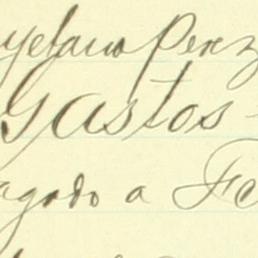 yetano Perez
Gastos
agado a Fe